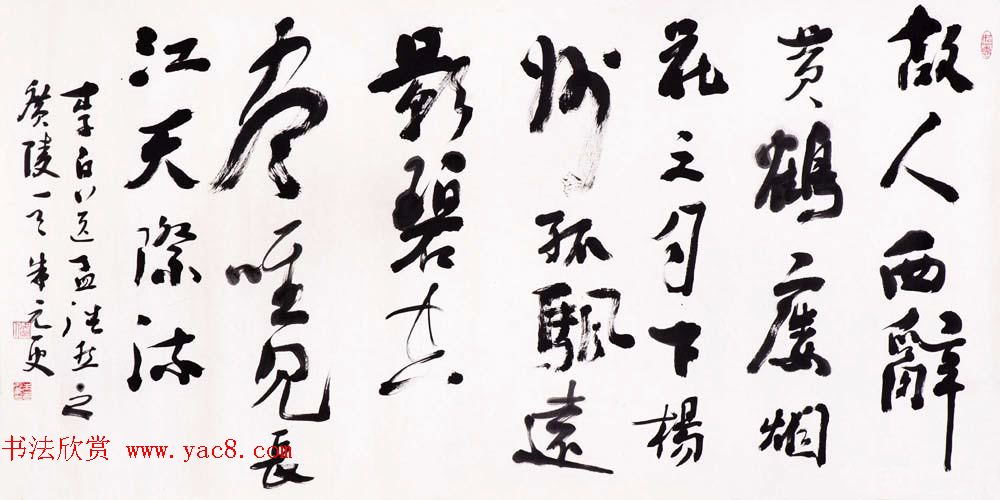 故人西辭
黄鶴廔烟
花三月下楊
州孤颿遠
影碧空
尽唯见長
江天際流
李白送孟浩然之
廣陵一首朱元更
书法欣赏 www.yac8.com